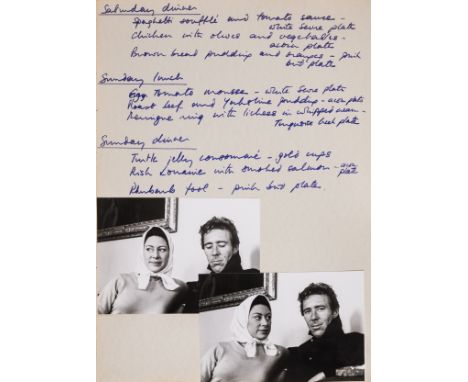 Saturday dinner
Spaghetti soufflé and tomato sauce -
white Sevre plate
Chicken with olives and vegetables -
acorn plate
Brown bread pudding and oranges - pink
bird plate
Sunday lunch
Egg Tomato mousse - white Sevre plate
Roast beef and Yorkshire pudding - acorn plate
Meringue ring with lichees in whipped cream -
Turquoise bird plate
Sunday dinner
Turtle jelly consommé - gold cups
Rish Lorraine with smoked salmon - acorn
plate
Rhubarb fool - pink bird plate.